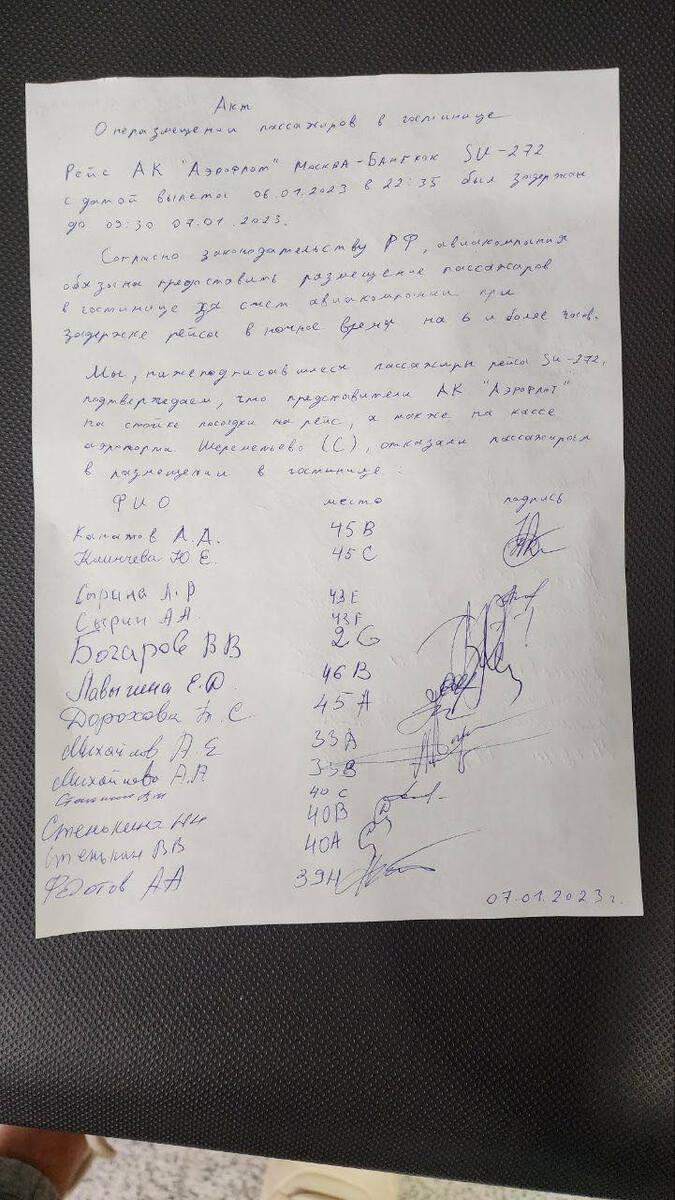 Акт
О неразмещении пассажиров в гостинице
Рейс АК "Аэрофлот" Москва-Бангкок SU-272
с датой вылета 06.01.2023 в 22:35 был задержан
до 09:30 07.01.2023.
Согласно законодательству РФ, авиакомпания
обязана предоставить размещение пассажиров
в гостинице за счет авиакомпании при
задержке рейса в ночное время на 6 и более часов.
Мы, нижеподписавшиеся пассажиры рейса SU-272,
подтверждаем, что представители АК "Аэрофлот"
на стойке посадки на рейс, а также на кассе
аэропорта Шереметьево (С), отказали пассажирам
в размещении в гостинице:
ФИО место подпись
А.Д. 45B
Климчева Ю.Е. 45C
Сырина Л.Р 43E
Сырин АА. 43F
Богаров ВВ 2G
Лавыгина Е.Ю. 46B
Дорохова С 45A
Михайлов А.Е 33A
Михайлова А.А 33B
40C
Стенькина НН 40B
Стенькин ВВ 40A
Федотов АА 39H
07.01.2023г.